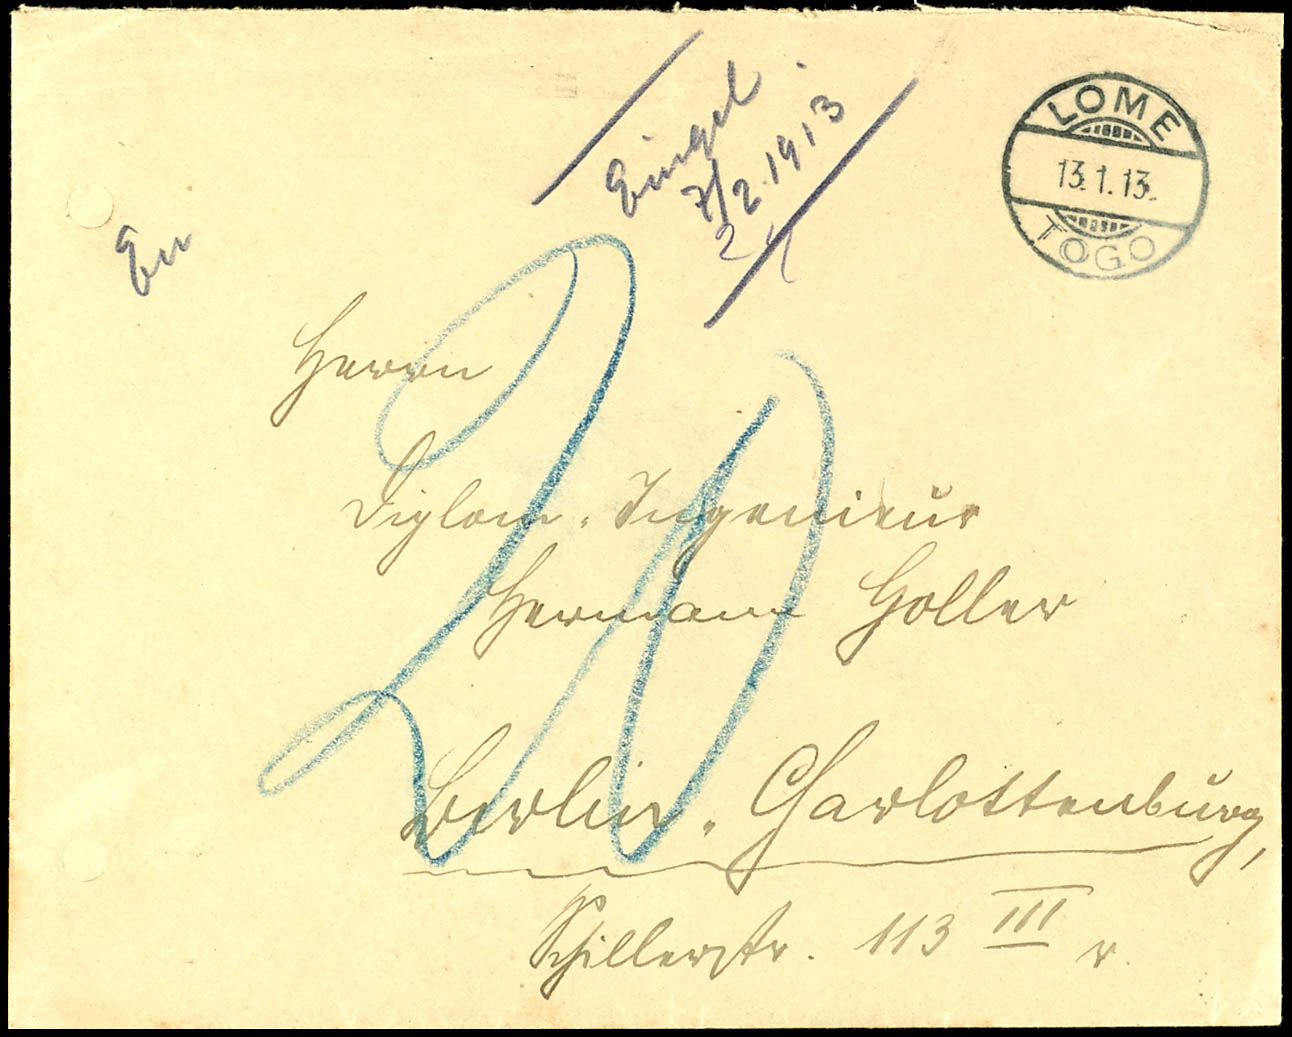 LOME
13.1.13.
TOGO
Eingel
7/2.1913
Herrn
Diplom. Ingenieur
Hermann Holler
20
Berlin. Charlottenburg,
Schillerstr. 113 III r.